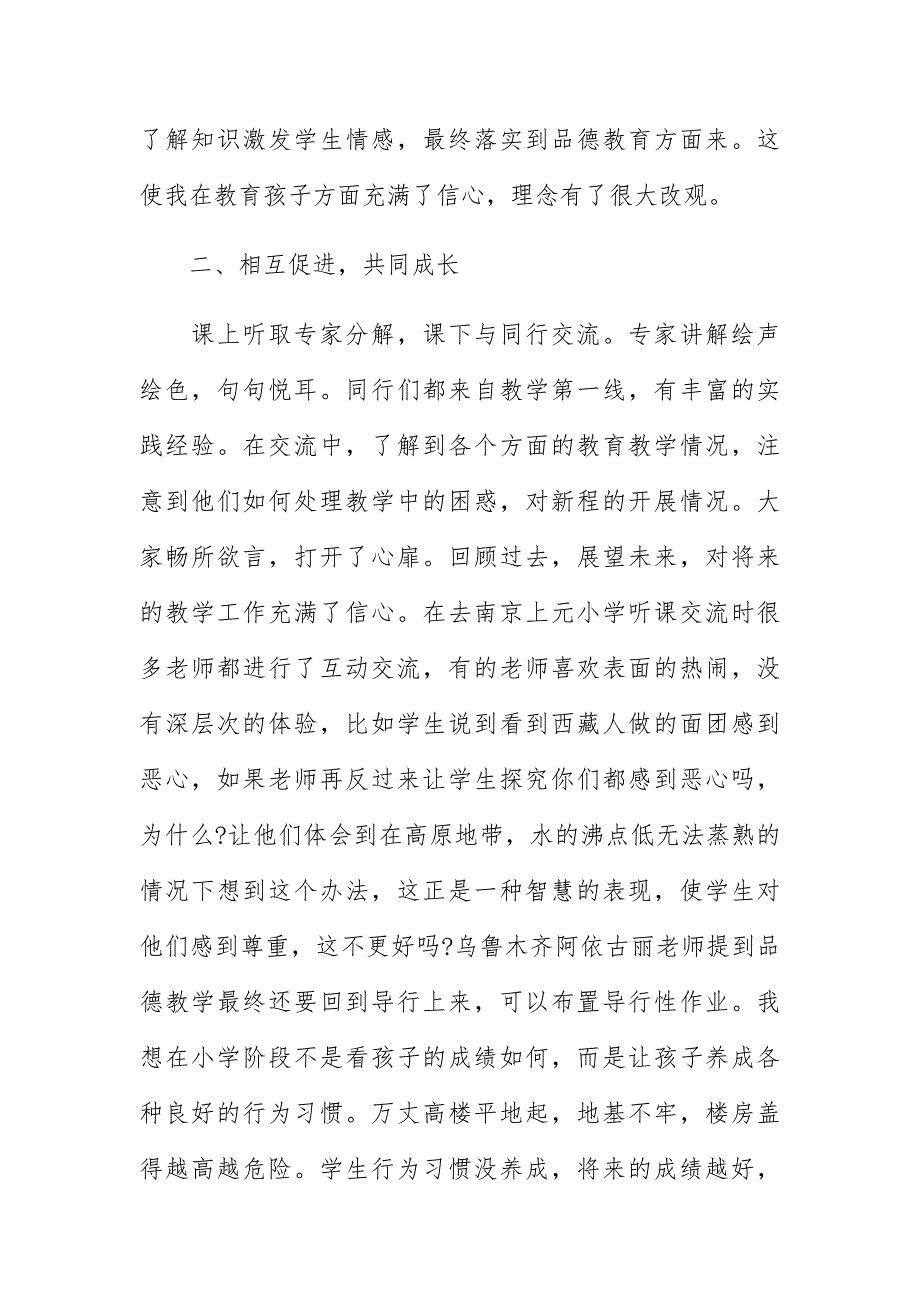 了解知识激发学生情感，最终落实到品德教育方面来。这
使我在教育孩子方面充满了信心，理念有了很大改观。
二、相互促进，共同成长
课上听取专家分解，课下与同行交流。专家讲解绘声
绘色，句句悦耳。同行们都来自教学第一线，有丰富的实
践经验。在交流中，了解到各个方面的教育教学情况，注
意到他们如何处理教学中的困惑，对新程的开展情况。大
家畅所欲言，打开了心扉。回顾过去，展望未来，对将来
的教学工作充满了信心。在去南京上元小学听课交流时很
多老师都进行了互动交流，有的老师喜欢表面的热闹，没
有深层次的体验，比如学生说到看到西藏人做的面团感到
恶心，如果老师再反过来让学生探究你们都感到恶心吗，
为什么?让他们体会到在高原地带，水的沸点低无法蒸熟的
情况下想到这个办法，这正是一种智慧的表现，使学生对
他们感到尊重，这不更好吗?乌鲁木齐阿依古丽老师提到品
德教学最终还要回到导行上来，可以布置导行性作业。我
想在小学阶段不是看孩子的成绩如何，而是让孩子养成各
种良好的行为习惯。万丈高楼平地起，地基不牢，楼房盖
得越高越危险。学生行为习惯没养成，将来的成绩越好，